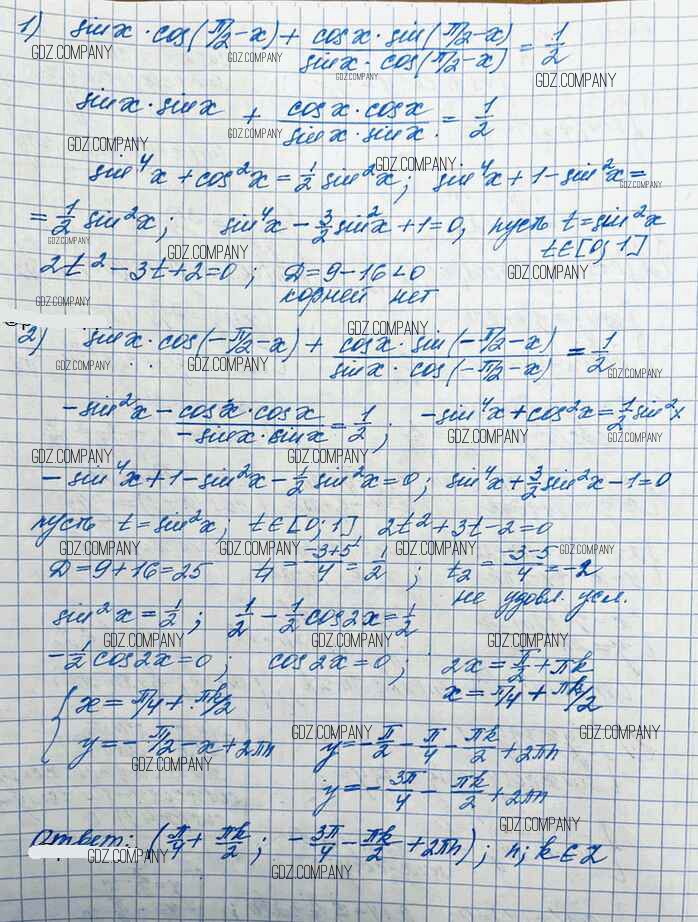 1) sinx · cos(π/2 - x) + (cosx · sin(π/2 - x))/(sinx · cos(π/2 - x)) = 1/2
GDZ.COMPANY GDZ.COMPANY GDZ.COMPANY GDZ.COMPANY
sinx · sinx + (cosx · cosx)/(sinx · sinx) = 1/2
GDZ.COMPANY GDZ.COMPANY GDZ.COMPANY
sin⁴x + cos²x = 1/2 sin²x; sin⁴x + 1 - sin²x =
GDZ.COMPANY
= 1/2 sin²x; sin⁴x - 3/2 sin²x + 1 = 0, пусть t = sin²x
GDZ.COMPANY GDZ.COMPANY t∈[0; 1]
2t² - 3t + 2 = 0; D = 9 - 16 < 0 GDZ.COMPANY
GDZ.COMPANY корней нет
2) sinx · cos(-π/2 - x) + (cosx · sin(-π/2 - x))/(sinx · cos(-π/2 - x)) = 1/2
GDZ.COMPANY GDZ.COMPANY GDZ.COMPANY
-sin²x - (cosx · cosx)/(-sinx · sinx) = 1/2; -sin⁴x + cos²x = 1/2 sin²x
GDZ.COMPANY GDZ.COMPANY GDZ.COMPANY GDZ.COMPANY
-sin⁴x + 1 - sin²x - 1/2 sin²x = 0; sin⁴x + 3/2 sin²x - 1 = 0
пусть t = sin²x; t∈[0; 1] 2t² + 3t - 2 = 0
GDZ.COMPANY GDZ.COMPANY GDZ.COMPANY GDZ.COMPANY
D = 9 + 16 = 25 t₁ = (-3+5)/4 = 1/2; t₂ = (-3-5)/4 = -2
не удовл. усл.
sin²x = 1/2; 1/2 - 1/2 cos2x = 1/2
GDZ.COMPANY GDZ.COMPANY GDZ.COMPANY
-1/2 cos2x = 0; cos2x = 0; 2x = π/2 + πk
x = π/4 + πk/2
{ x = π/4 + πk/2
GDZ.COMPANY GDZ.COMPANY
y = -π/2 - x + 2πn y = -π/2 - π/4 - πk/2 + 2πn
GDZ.COMPANY
y = -3π/4 - πk/2 + 2πn
GDZ.COMPANY
Ответ: (π/4 + πk/2; -3π/4 - πk/2 + 2πn); n; k∈Z
GDZ.COMPANY GDZ.COMPANY